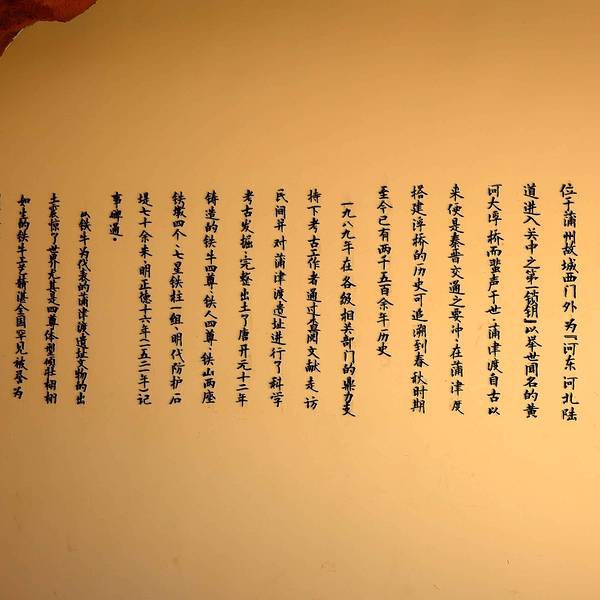 位于蒲州故城西门外，为『河东、河北陆
道进入关中之第一锁钥』以举世闻名的黄
河大浮桥而蜚声于世。蒲津渡自古以
来便是秦晋交通之要冲，在蒲津渡
搭建浮桥的历史可追溯到春秋时期
至今已有两千五百余年历史
一九八九年在各级相关部门的鼎力支
持下考古工作者通过查阅文献、走访
民间并对蒲津渡遗址进行了科学
考古发掘，完整出土了唐开元十二年
铸造的铁牛四尊、铁人四尊、铁山两座
铁墩四个、七星铁柱一组、明代防护石
堤七十余米、明正德十六年（一五二一年）记
事碑一通。
以铁牛为代表的蒲津渡遗址文物的出
土震惊了世界尤其是四尊体型硕壮栩栩
如生的铁牛工艺精湛全国罕见被誉为